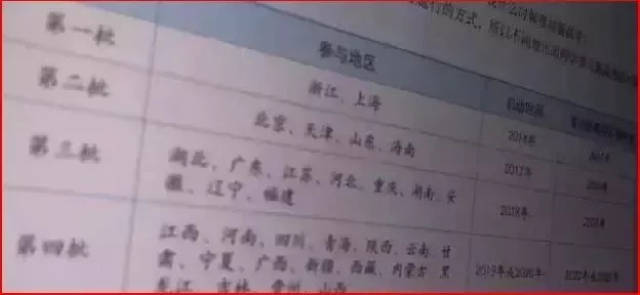 参与地区
启动时间
第一批
浙江、上海
2014年
第二批
北京、天津、山东、海南
2017年
第三批
湖北、广东、江苏、河北、重庆、湖南、安
徽、辽宁、福建
2018年
第四批
江西、河南、四川、青海、陕西、云南、甘
肃、宁夏、广西、新疆、西藏、内蒙古、黑
龙江、吉林、贵州、山西
2019年或2020年